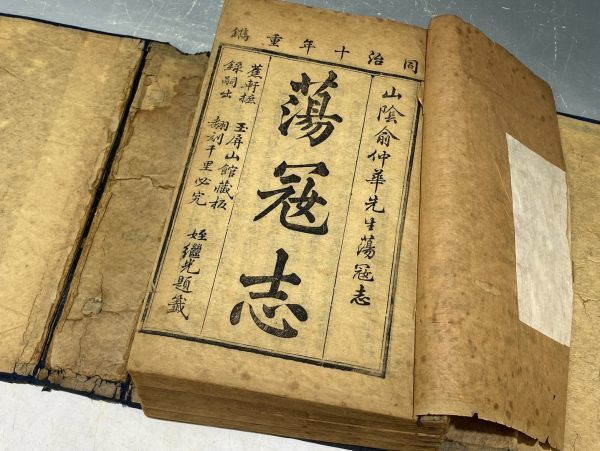 同治十年重鐫
山陰俞仲華先生蕩寇志
蕩寇志
蕉軒摭錄嗣出
玉屏山館藏板
翻刻千里必究
姪繼光題籤